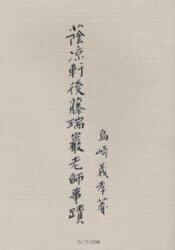 蔭凉軒後藤瑞巖老師事蹟
島崎義孝著